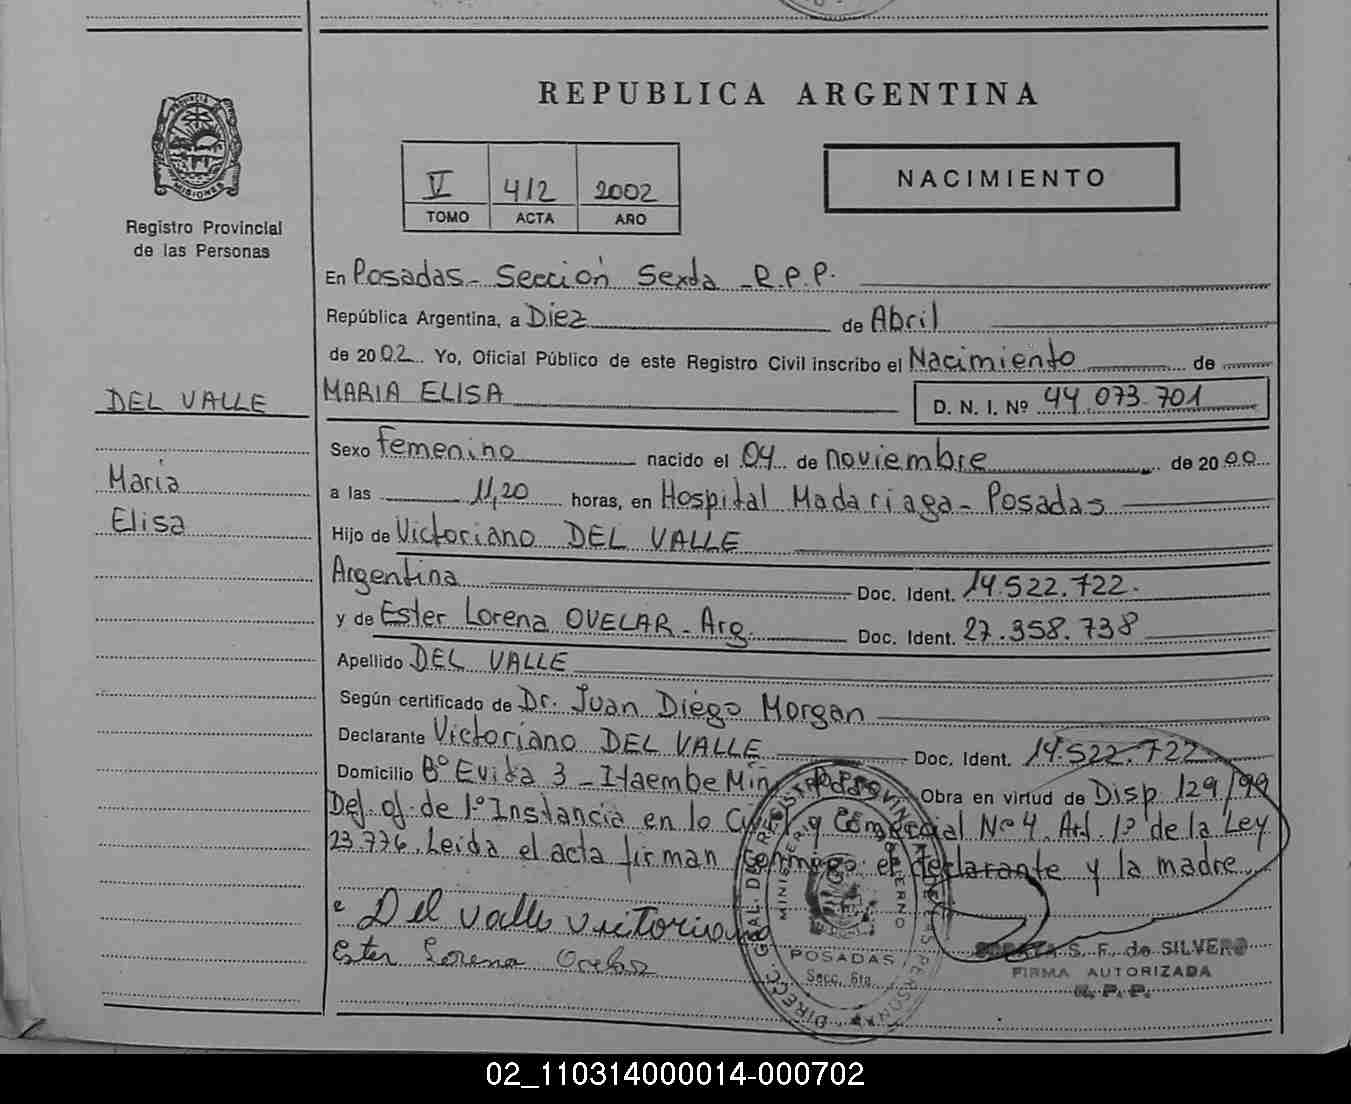 REPUBLICA ARGENTINA
PROVINCIA DE
MISIONES
Registro Provincial
de las Personas
V 412 2002
TOMO ACTA AÑO
NACIMIENTO
En Posadas - Sección Sexta - R.P.P.
República Argentina, a Diez de Abril
de 2002 Yo, Oficial Público de este Registro Civil inscribo el Nacimiento de
MARIA ELISA D. N. I. Nº 44.073.701
DEL VALLE
Maria
Elisa
Sexo femenino nacido el 04 de noviembre de 2000
a las 11,20 horas, en Hospital Madariaga - Posadas
Hijo de Victoriano DEL VALLE
Argentina Doc. Ident. 14.522.722.
y de Ester Lorena OVELAR - Arg. Doc. Ident. 27.358.738
Apellido DEL VALLE
Según certificado de Dr. Juan Diego Morgan
Declarante Victoriano DEL VALLE Doc. Ident. 14.522.722
Domicilio Bº Evita 3 - Itaembe Miní Obra en virtud de Disp 129/99
Def. of. de 1º Instancia en lo Civil y Comercial Nº 4. Art. 1º de la Ley
23.776. Leida el acta firman conmigo el declarante y la madre
Del Valle Victoriano
Ester Lorena Ovelar
DIRECC. GRAL. DEL REGISTRO PROVINCIAL DE LAS PERSONAS
MINISTERIO DE GOBIERNO
POSADAS
Secc. 6ta.
S. F. de SILVERO
FIRMA AUTORIZADA
R. P. P.
02_110314000014-000702